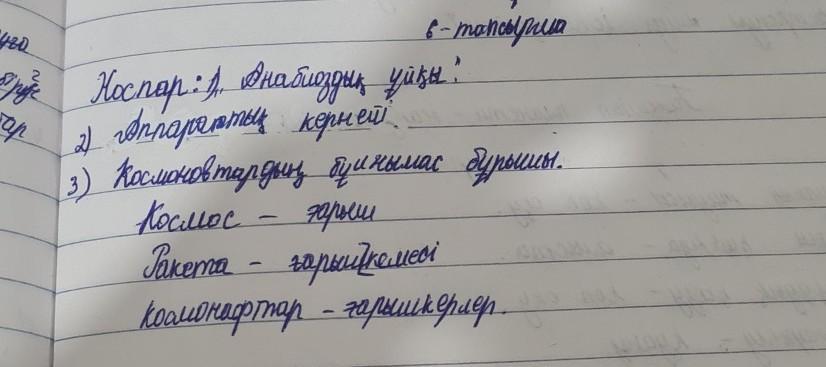 6-тапсырма
Жоспар: 1) Анабиоздық ұйқы.
2) Аппараттың кернеті
3) Космоновтардың бұлнымас бұрышы.
Космос – ғарыш
Ракета – ғарыш кемесі
Космонафтар – ғарышкерлер.